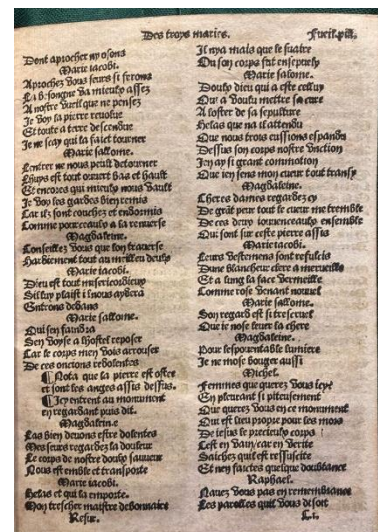 Des troys maries. Fueil. xiii.
Dont aprocher ny osons
Marie iacobi.
Aprochez vous seurs si ferons
La besongne va mieulx assez
A nostre vueil que ne pensez
Je voy la pierre reuolue
Et toute a terre descendue
Je ne scay qui la faict tourner
Marie sallome.
Lentrer ne nous peult destourner
Lhuys est tout ouuert bas et hault
Et encores qui mieulx nous vault
Je voy les gardes bien remis
Car ilz sont couchez et endormis
Comme pourceaulx a la renuerse
Magdaleine.
Conseillez vous que lon trauerse
Hardiement tout au meillieu deulx
Marie iacobi.
Dieu est tout misericordieux
Sil luy plaist il nous aydera
Entrons dedans
Marie salome.
Qui sen faindra
Sen voyse a lhostel reposer
Car le corps men vois arrouser
De ces onctions redolentes
Nota que la pierre est ostee
et sont les anges assis dessus.
Icy entrent au monument
en regardant puis dit.
Magdaleine
Las bien deuons estre dolentes
Mes seurs regardez la douleur
Le corps de nostre doulx sauueur
Nous est emble et transporte
Marie iacobi.
Helas et qui la emporte.
Mon trescher maistre debonnaire
Resur.
Il nya mais que le suaire
Ou son corps fut ensepuely
Marie salome.
Doulx dieu qui a este celluy
Qui a voulu mettre sa cure
A loster de sa sepulture
Helas que na il attendu
Que nous trois eussions espandu
Dessus son corps nostre vnction
Jen ay si grant commotion
Que ien sens mon cueur tout transy
Magdaleine.
Cheres dames regardez cy
De grāt peur tout le cueur me tremble
De ces deux iouuenceaulx ensemble
Qui sont sur ceste pierre assis
Marie iacobi.
Leurs vestemens sont refulcis
Dune blancheur clere a merueilles
Et a lung la face vermeille
Comme rose venant nouuel
Marie sallome.
Son regard est si trescruel
Que ie nose leuer la chere
Magdaleine.
Pour lespouentable lumiere
Je ne mose bouger aussi
Michel.
Femmes que querez vous icy
En plourant si piteusement
Que querez vous en ce monument
Qui est lieu propre pour les mors
De iesus le precieulx corps
Cest en vain, car en verite
Saichez quil est ressuscite
Et nen faictes quelque doubtance
Raphael.
Nauez vous pas en remembrance
Les parolles quil vous disoit